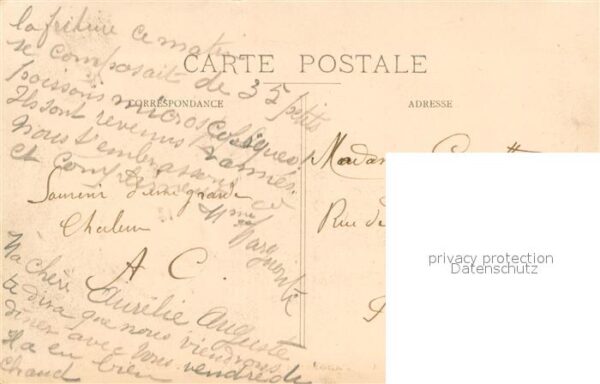 la friture ce matin
se composait de 35 petits
poissons microscopiques
Ils sont revenus vannés
Nous t'embrassons
et
CARTE POSTALE
CORRESPONDANCE
ADRESSE
Souvenir d'une grande
Chaleur
A C.
Madame
Rue de
Ma chère Aurélie Auguste
te dira que nous viendrons
diner avec vous vendredi
Il a eu bien
chaud
privacy protection
Datenschutz